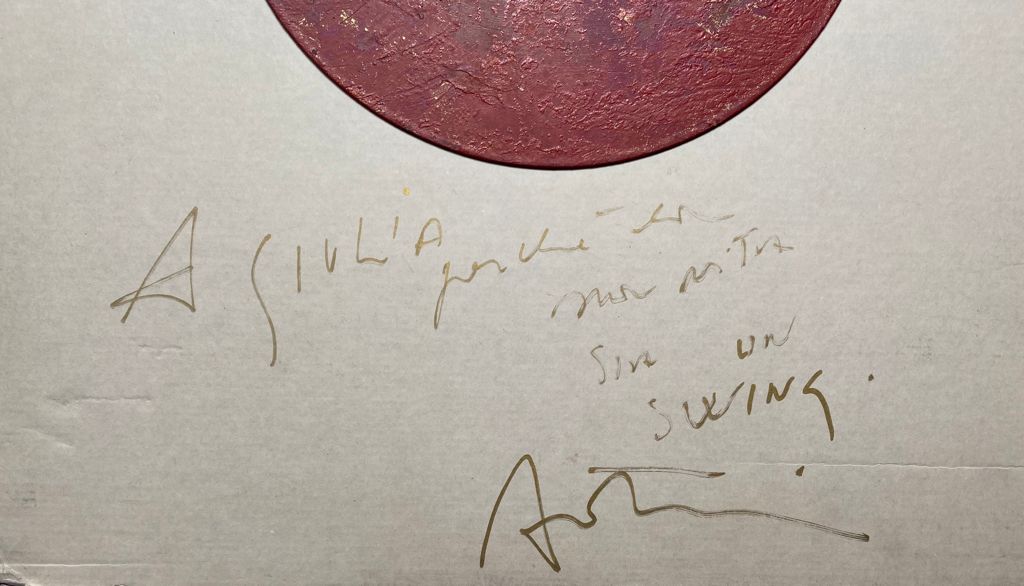 A GIULIA perché la
sua vita
sia un
SWING.